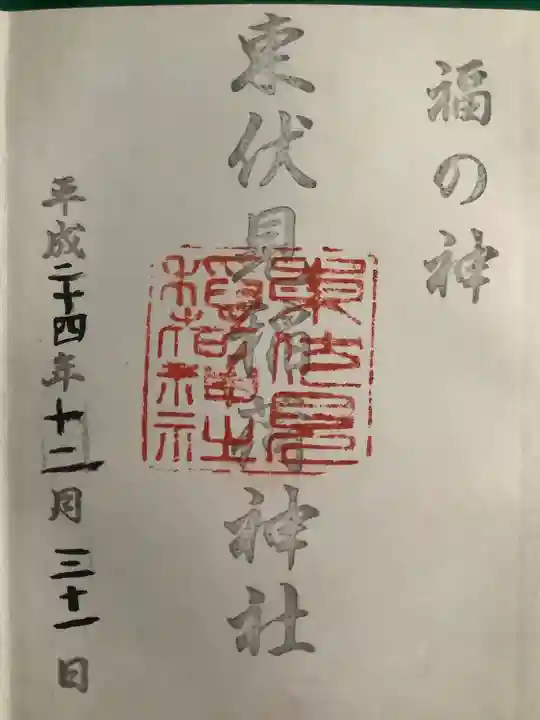 福の神
東伏見稲荷神社
東伏見
稲荷神社
平成二十四年十二月三十一日